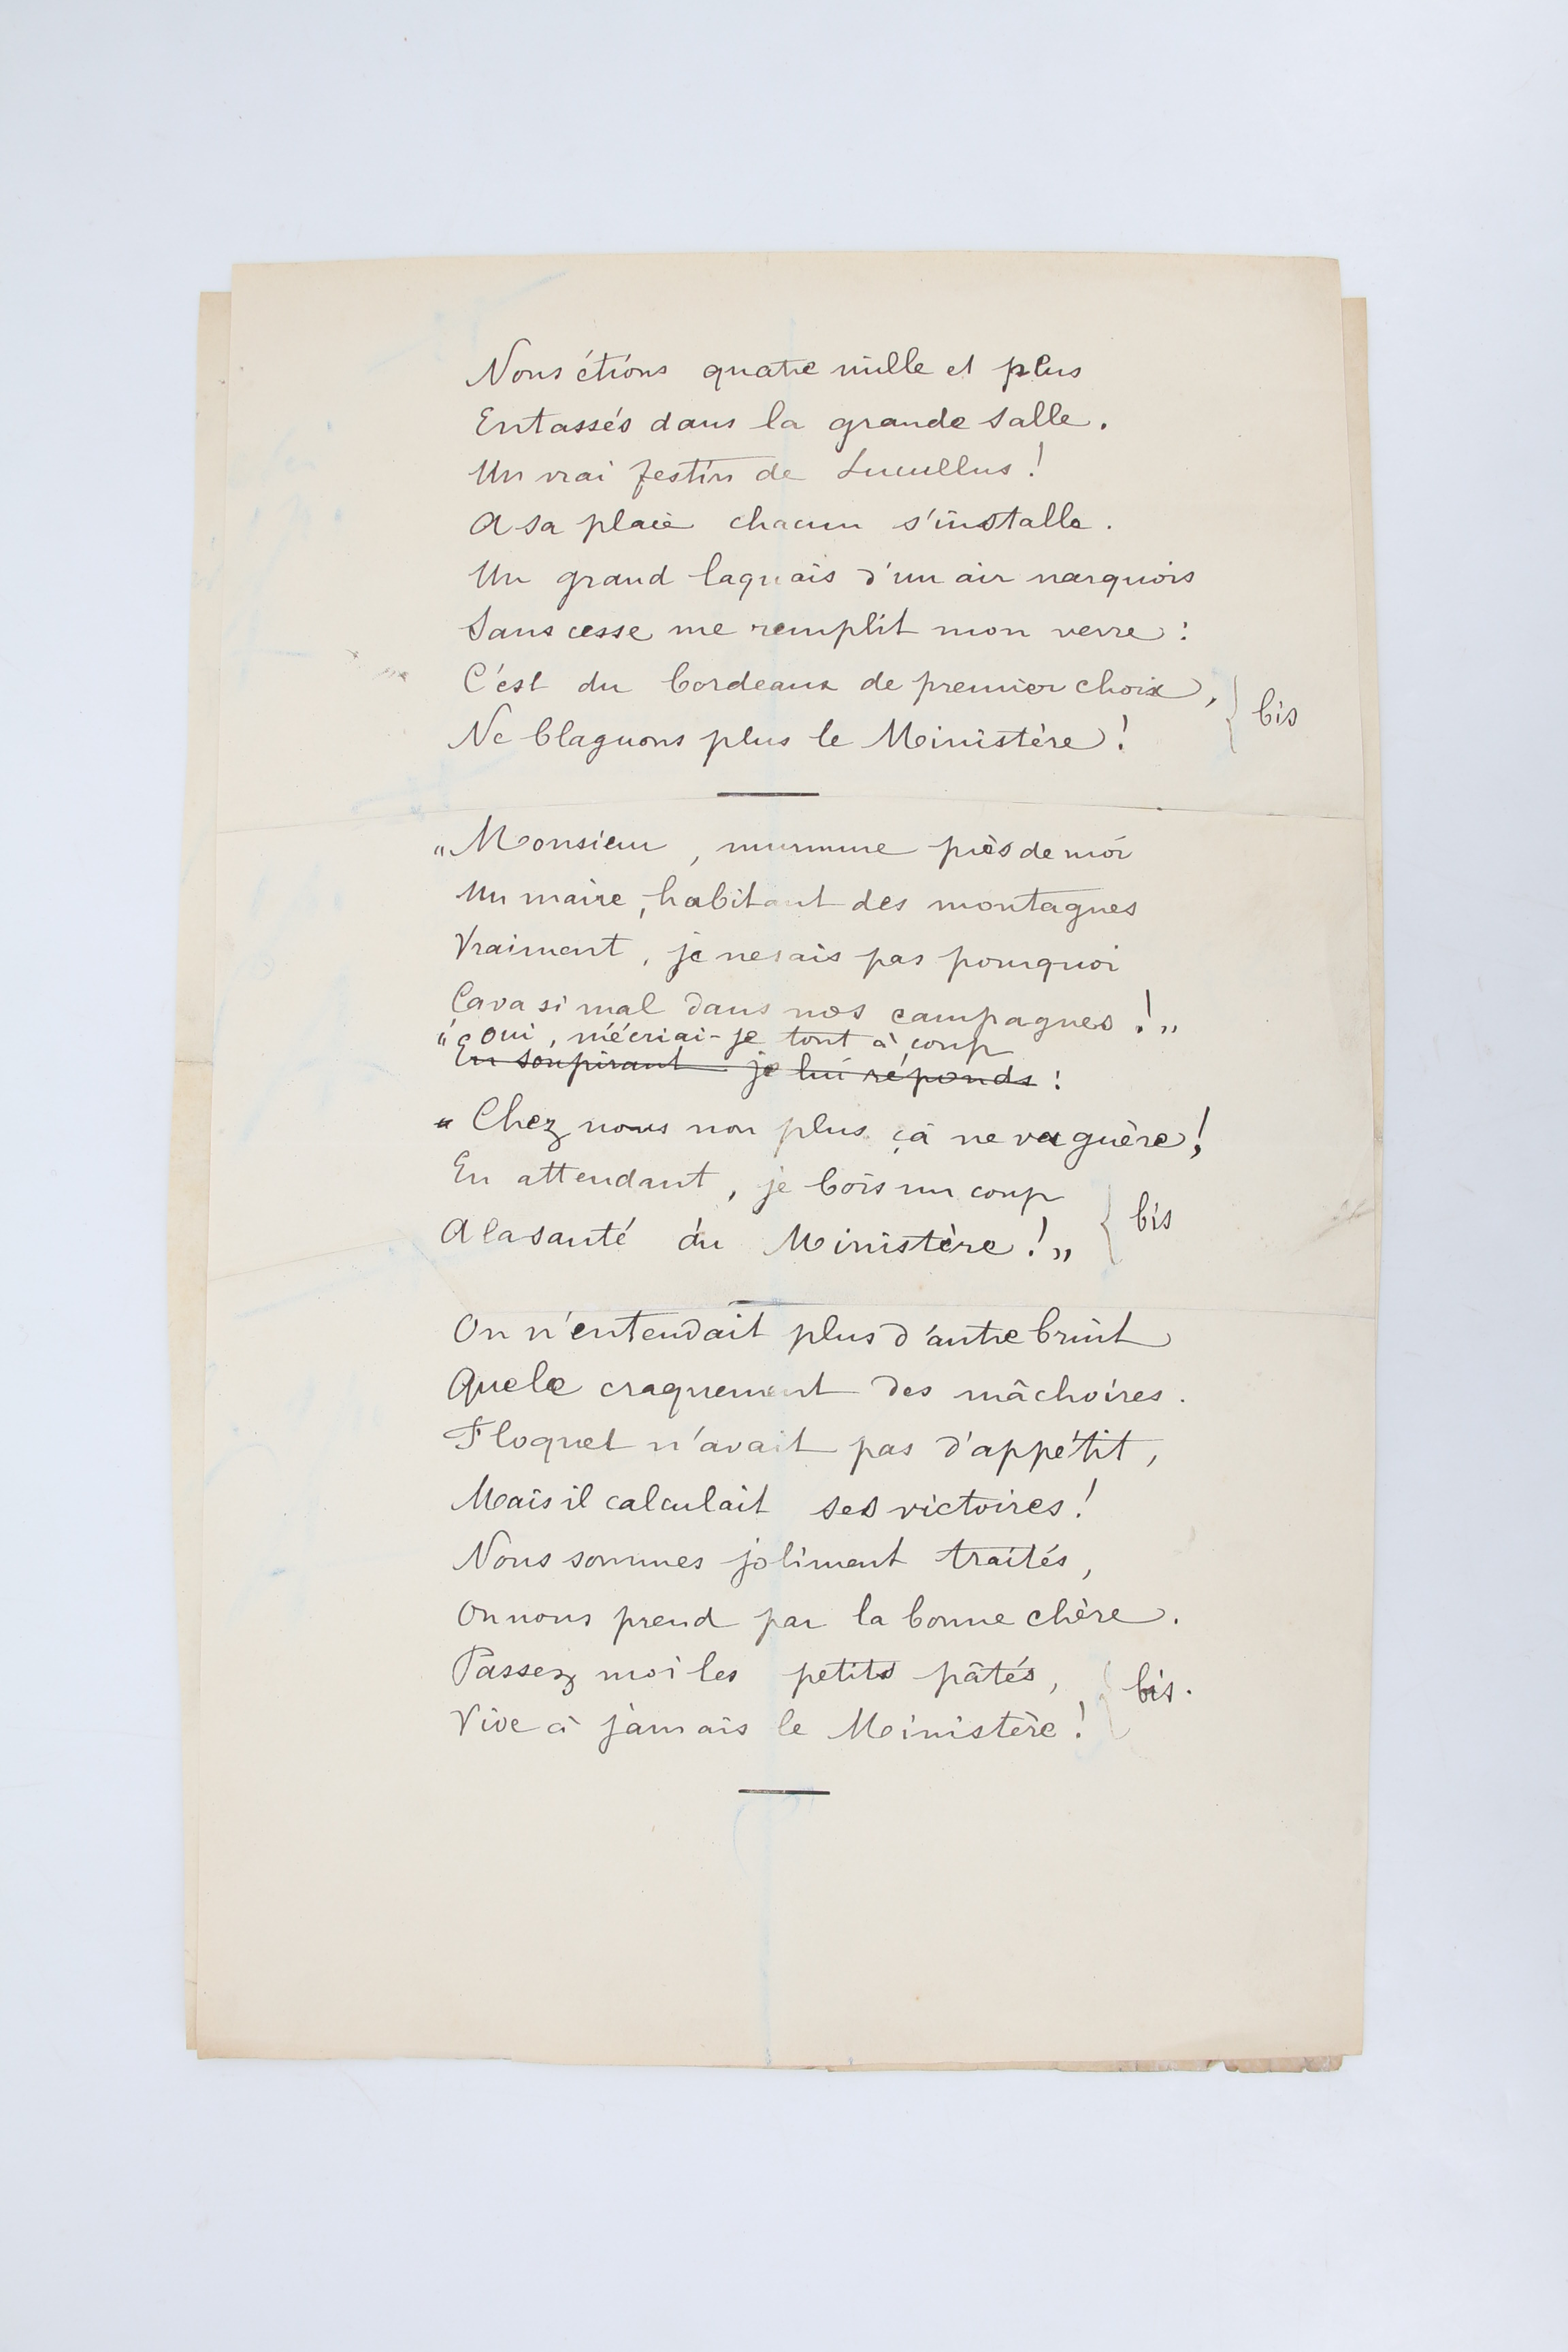 Nous étions quatre mille et plus
Entassés dans la grande salle.
Un vrai festin de Lucullus !
A sa place chacun s'installe.
Un grand laquais d'un air narquois
Sans cesse me remplit mon verre :
C'est du bordeaux de premier choix,
Ne blaguons plus le Ministère !
bis
„ Monsieur, murmure près de moi
Un maire, habitant des montagnes
Vraiment, je ne sais pas pourquoi
Ça va si mal dans nos campagnes ! „
„ Oui, m'écriai-je tout à coup
En soupirant je lui réponds :
„ Chez nous non plus çà ne va guère !
En attendant, je bois un coup
A la santé du Ministère ! „
bis
On n'entendait plus d'autre bruit
Que le craquement des mâchoires.
Floquet n'avait pas d'appétit,
Mais il calculait ses victoires !
Nous sommes joliment traités,
On nous prend par la bonne chère.
Passez moi les petits pâtés,
Vive à jamais le Ministère !
bis.